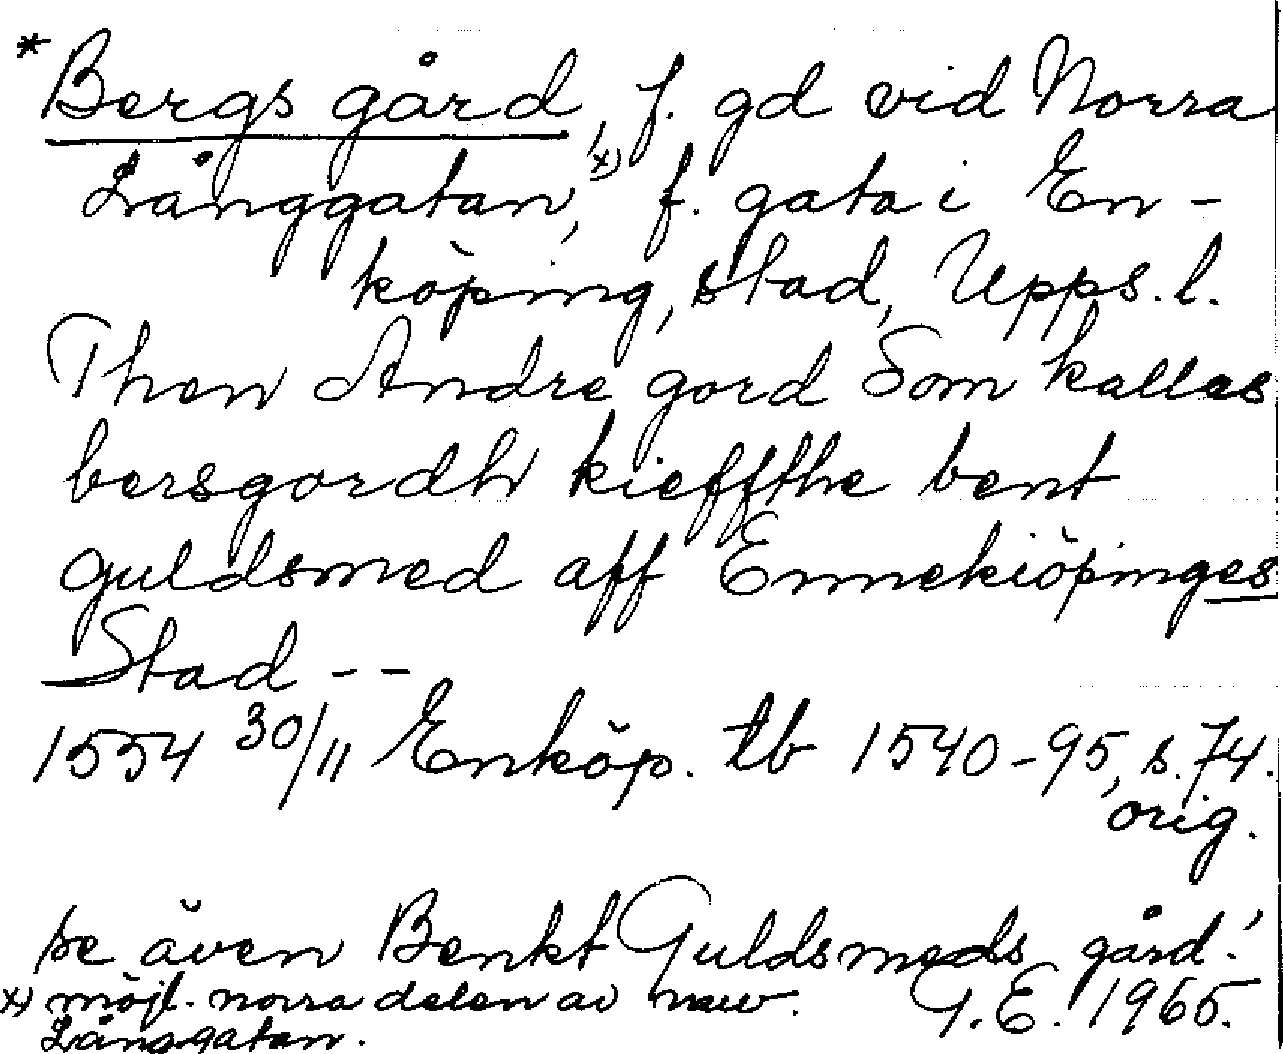 * Bergs gård, f. gd vid Norra
Långgatan, x) f. gata i En-
köping, stad, Upps. l.
Then Andre gord Som kallas
bersgordh kieffthe bent
guldsmed aff Ennekiöpinges
Stad --
1554 30/11 Enköp. tb 1540-95, s. 74.
orig.
se även Benkt Guldsmeds gård!
x) möjl. norra delen av nuv.
Långgatan.
G.E. 1965.